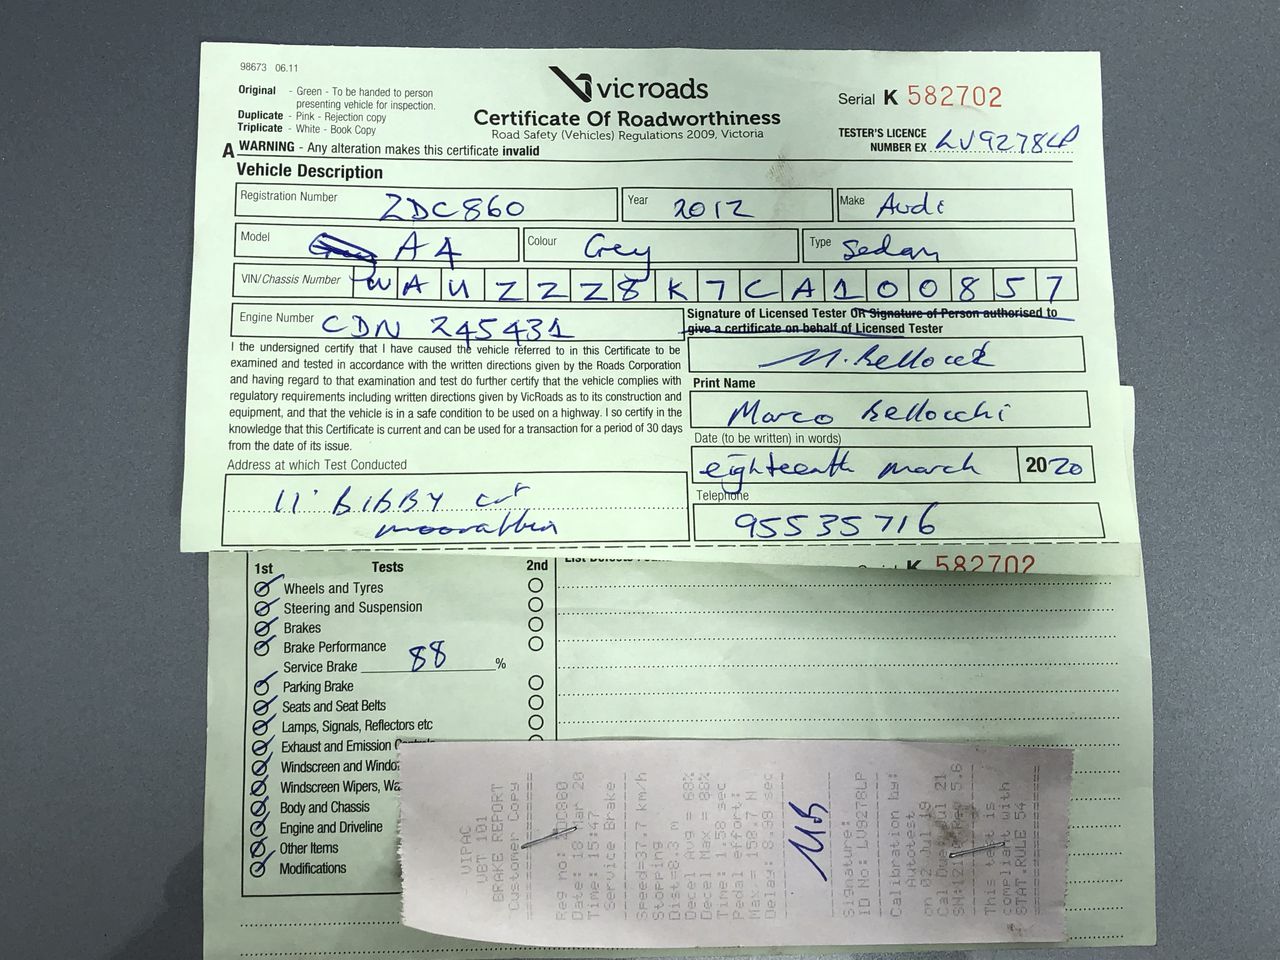 98673 06.11
Original - Green - To be handed to person
presenting vehicle for inspection.
Duplicate - Pink - Rejection copy
Triplicate - White - Book Copy
A WARNING - Any alteration makes this certificate invalid
vicroads
Certificate Of Roadworthiness
Road Safety (Vehicles) Regulations 2009, Victoria
Serial K 582702
TESTER'S LICENCE
NUMBER EX LV9278LP
Vehicle Description
Registration Number ZDC860 Year 2012 Make Audi
Model A4 Colour Grey Type Sedan
VIN/Chassis Number WAUZZZ8K7CA100857
Engine Number CDN 245431
Signature of Licensed Tester OR Signature of Person authorised to
give a certificate on behalf of Licensed Tester
I the undersigned certify that I have caused the vehicle referred to in this Certificate to be
examined and tested in accordance with the written directions given by the Roads Corporation
and having regard to that examination and test do further certify that the vehicle complies with
regulatory requirements including written directions given by VicRoads as to its construction and
equipment, and that the vehicle is in a safe condition to be used on a highway. I so certify in the
knowledge that this Certificate is current and can be used for a transaction for a period of 30 days
from the date of its issue.
Print Name
Marco Bellocchi
Date (to be written) in words)
eighteenth march 2020
Address at which Test Conducted
11 BIBBY crt
moorabbin
Telephone
95535716
1st Tests 2nd
K 582702
Wheels and Tyres
Steering and Suspension
Brakes
Brake Performance
Service Brake 88 %
Parking Brake
Seats and Seat Belts
Lamps, Signals, Reflectors etc
Exhaust and Emission
Windscreen and
Windscreen Wipers,
Body and Chassis
Engine and Driveline
Other Items
Modifications
VIPAC
VBT 101
BRAKE REPORT
Customer Copy
Reg no:
Date: 18 Mar 20
Time: 15:47
Service Brake
Speed=37.7 km/h
Stopping
Dist=8.3 m
Decel Avg = 68%
Decel Max = 88%
Time: 1.58 sec
Pedal effort:
Max = 158.7 N
Delay: 0.39 sec
MB
Signature:
ID No: LV9278LP
Calibration by:
Autotest
on 02 Jul 19
Cal Due Jul 21
This test is
compliant with
STAT.RULE 54